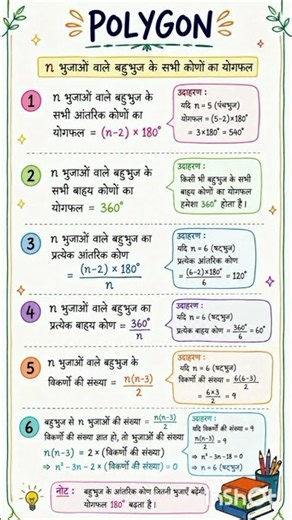 POLYGON
n भुजाओं वाले बहुभुज के सभी कोणों का योगफल
1
n भुजाओं वाले बहुभुज के
सभी आंतरिक कोणों का
योगफल = (n-2) × 180°
उदाहरण :
यदि n = 5 (पंचभुज)
योगफल = (5-2)×180°
= 3×180° = 540°
2
n भुजाओं वाले बहुभुज के
सभी बाह्य कोणों का
योगफल = 360°
उदाहरण :
किसी भी बहुभुज के सभी
बाह्य कोणों का योगफल
हमेशा 360° होता है।
3
n भुजाओं वाले बहुभुज का
प्रत्येक आंतरिक कोण
= (n-2) × 180° / n
उदाहरण :
यदि n = 6 (षट्भुज)
प्रत्येक आंतरिक कोण
= (6-2)×180° / 6 = 120°
4
n भुजाओं वाले बहुभुज का
प्रत्येक बाह्य कोण = 360° / n
उदाहरण :
यदि n = 6 (षट्भुज)
प्रत्येक बाह्य कोण = 360° / 6 = 60°
5
n भुजाओं वाले बहुभुज के
विकर्णों की संख्या = n(n-3) / 2
उदाहरण :
यदि n = 6 (षट्भुज)
विकर्णों की संख्या = 6(6-3) / 2
= 6×3 / 2 = 9
6
बहुभुज से n भुजाओं की संख्या = n(n-3) / 2
विकर्णों की संख्या ज्ञात हो, तो भुजाओं की संख्या
n(n-3) = 2 × (विकर्णों की संख्या)
⇒ n² - 3n - 2 × (विकर्णों की संख्या) = 0
उदाहरण :
यदि विकर्णों की संख्या = 9
n(n-3) / 2 = 9
⇒ n² - 3n - 18 = 0
⇒ n = 6 (षट्भुज)
नोट : बहुभुज के आंतरिक कोण जितनी भुजाएँ बढ़ेंगी,
योगफल 180° बढ़ता है।